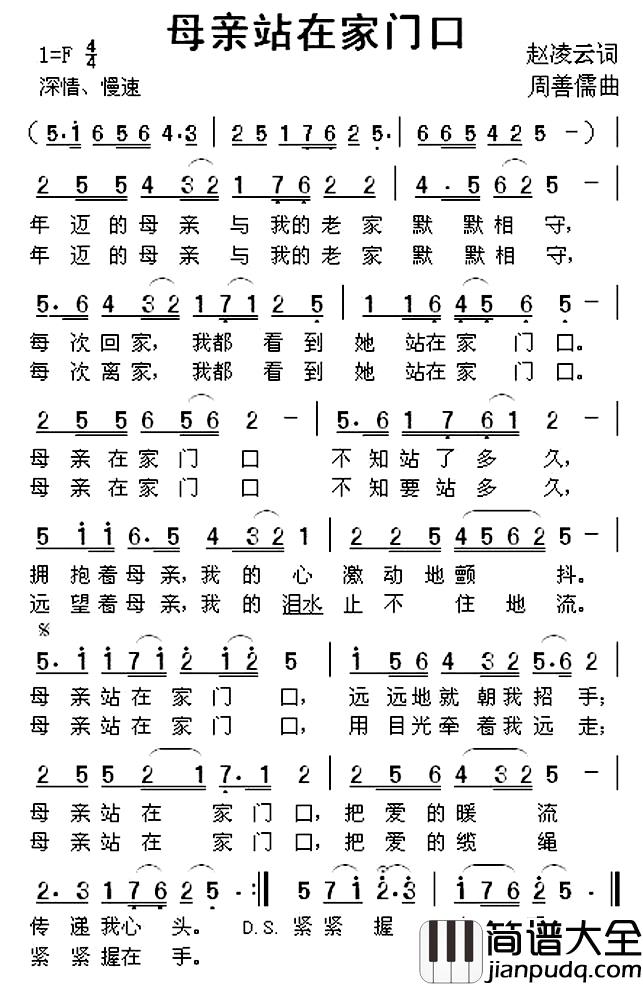 母亲站在家门口
1=F 4/4
赵凌云词
深情、慢速
周善儒曲
(5·i 6 5 6 4·3 | 2 5 1 7 6 2 5· | 6 6 5 4 2 5 -) |
2 5 5 4 3 2 1 7 6 2 2 | 4· 5 6 2 5 - |
年迈的母亲与我的老家默默相守,
年迈的母亲与我的老家默默相守,
5·6 4 3 2 1 7 1 2 5 | 1 1 6 4 5 6 5 - |
每次回家,我都看到她站在家门口。
每次离家,我都看到她站在家门口。
2 5 5 6 5 6 2 - | 5·6 1 7 6 1 2 - |
母亲在家门口不知站了多久,
母亲在家门口不知要站多久,
5 i i 6·5 4 3 2 1 | 2 2 5 4 5 6 2 5 - |
拥抱着母亲,我的心激动地颤抖。
远望着母亲,我的泪水止不住地流。
5· i 7 i 2 i 2 5 | i 5 6 4 3 2 5·6 2 |
母亲站在家门口,远远地就朝我招手;
母亲站在家门口,用目光牵着我远走;
2 5 5 2 1 7·1 2 | 2 5 6 4 3 2 5 - |
母亲站在家门口,把爱的暖流
母亲站在家门口,把爱的缆绳
2·3 1 7 6 2 5 - :| 5 7 i 2·3 | 1 7 6 5 - ‖
传递我心头。D.S.紧紧握
紧紧握在手。
简谱大全
jianpudq.com